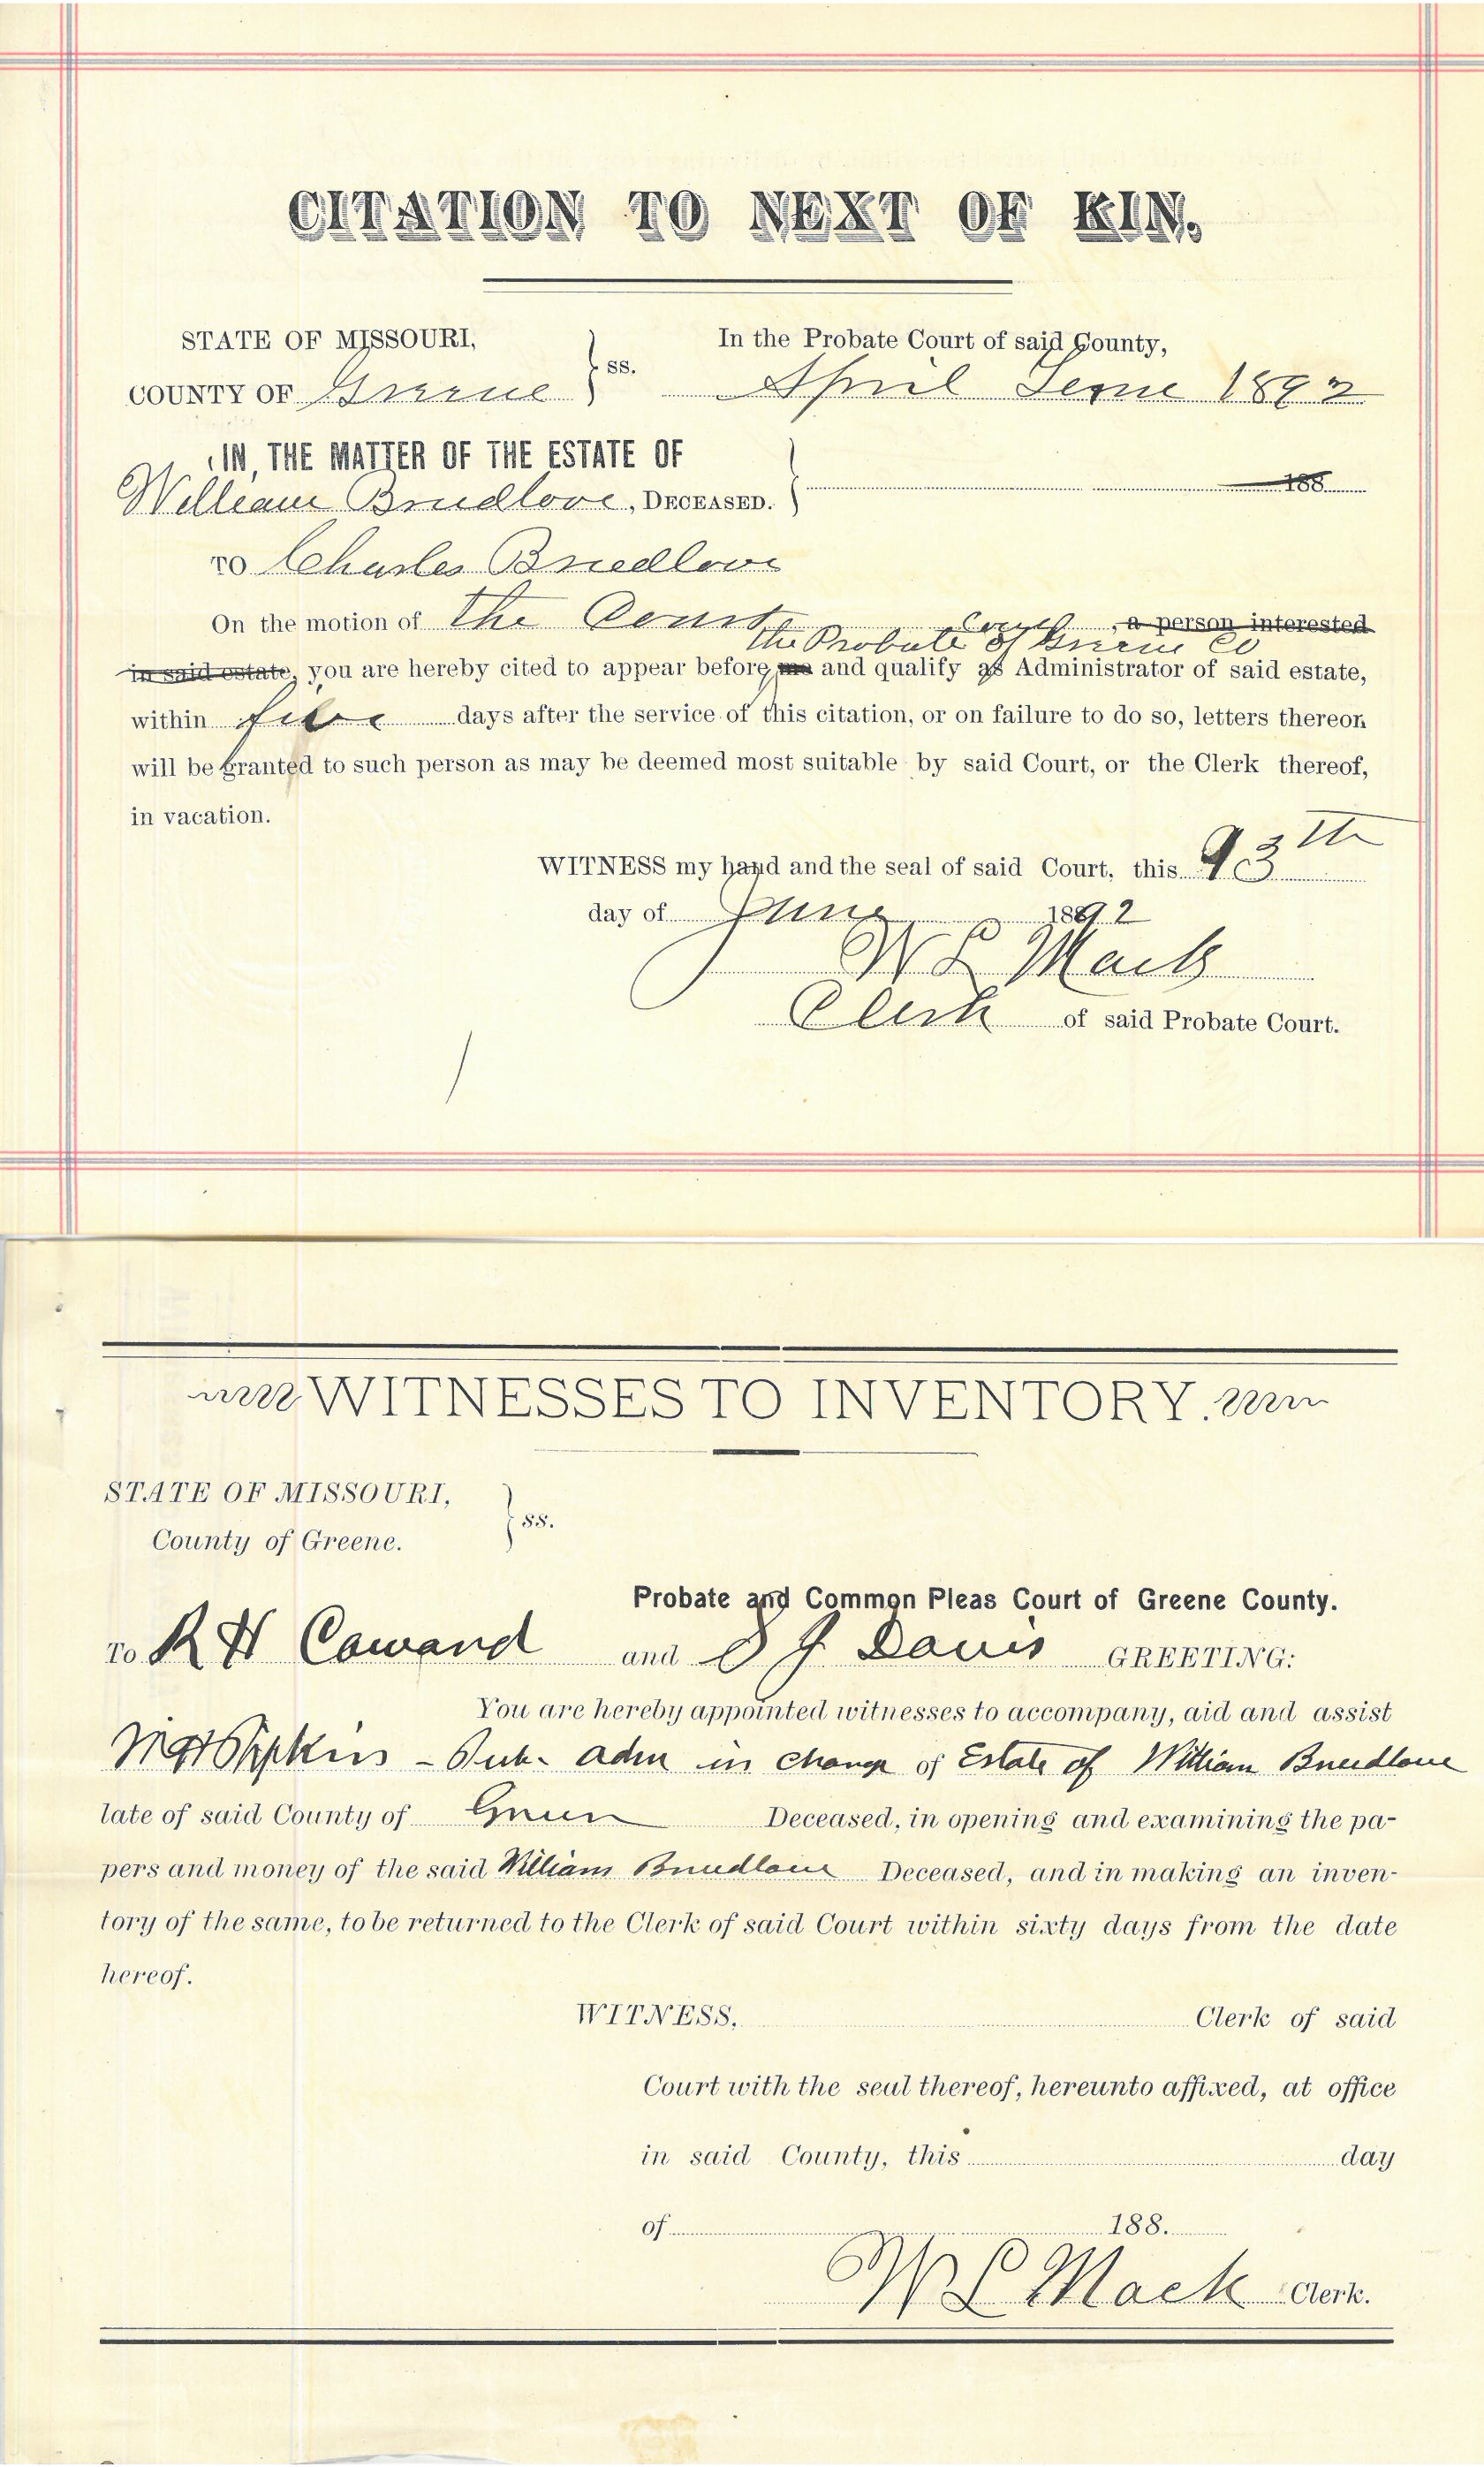 CITATION TO NEXT OF KIN.
STATE OF MISSOURI,
COUNTY OF Greene
ss.
In the Probate Court of said County,
April Term 1892
IN THE MATTER OF THE ESTATE OF
William Breedlove, DECEASED.
188
TO Charles Breedlove
On the motion of The Court, a person interested
the Probate Court of Greene Co
in said estate, you are hereby cited to appear before me and qualify as Administrator of said estate,
within five days after the service of this citation, or on failure to do so, letters thereon
will be granted to such person as may be deemed most suitable by said Court, or the Clerk thereof,
in vacation.
WITNESS my hand and the seal of said Court, this 13th
day of June 1892
W L Mack
Clerk of said Probate Court.
WITNESSES TO INVENTORY.
STATE OF MISSOURI,
County of Greene.
ss.
Probate and Common Pleas Court of Greene County.
To R H Coward and S J Davis GREETING:
You are hereby appointed witnesses to accompany, aid and assist
Pub. adm in charge of Estate of William Breedlove
late of said County of Green Deceased, in opening and examining the pa-
pers and money of the said William Breedlove Deceased, and in making an inven-
tory of the same, to be returned to the Clerk of said Court within sixty days from the date
hereof.
WITNESS, Clerk of said
Court with the seal thereof, hereunto affixed, at office
in said County, this day
of 188.
W L Mack Clerk.